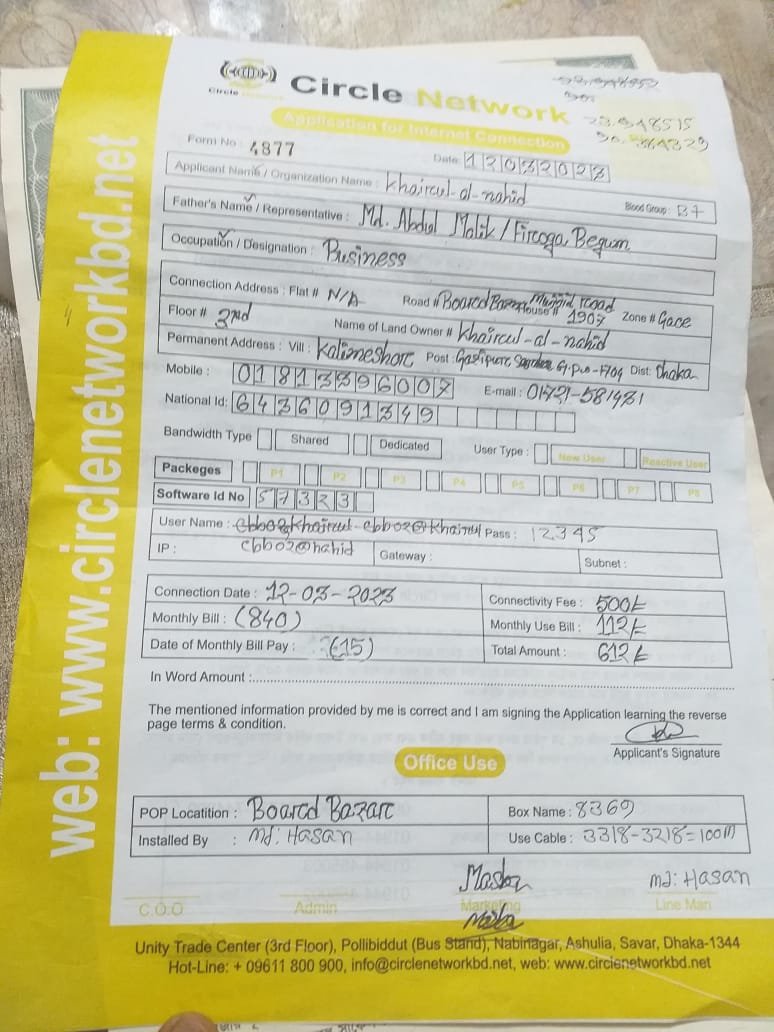 Circle Network
Circle
Application for Internet Connection
23.948515
90.384329
Form No : 4877
Date: 12032023
Applicant Name / Organization Name : Khairul-al-nahid
Blood Group : B+
Father's Name / Representative : Md. Abdul Malik / Firoga Begum
Occupation / Designation : Business
Connection Address : Flat # N/A Road # Board Bazar Masjid road House # 1907 Zone #
Floor # 2nd Name of Land Owner # Khairul-al-nahid
Permanent Address : Vill : Kalimeshar Post : Gazipur Dist: Dhaka
Mobile : 01813396007 E-mail : 01721-581431
National Id: 6436091349
Bandwidth Type Shared Dedicated User Type : New User Reactive User
Packeges P1 P2 P3 P4 P5 P6 P7 P8
Software Id No 57323
User Name : cbb02@khairul Pass : 12345
IP : cbb02@nahid Gateway : Subnet :
Connection Date : 12-03-2023 Connectivity Fee : 500/-
Monthly Bill : (840) Monthly Use Bill : 112/-
Date of Monthly Bill Pay : (15) Total Amount : 612/-
In Word Amount :
The mentioned information provided by me is correct and I am signing the Application learning the reverse
page terms & condition.
Applicant's Signature
Office Use
POP Locatition : Board Bazar Box Name : 8369
Installed By : md: Hasan Use Cable : 3318-3218=100m
md: Hasan
C.O.O Admin Marketing Line Man
Unity Trade Center (3rd Floor), Pollibiddut (Bus Stand), Nabinagar, Ashulia, Savar, Dhaka-1344
Hot-Line: + 09611 800 900, info@circlenetworkbd.net, web: www.circlenetworkbd.net
web: www.circlenetworkbd.net